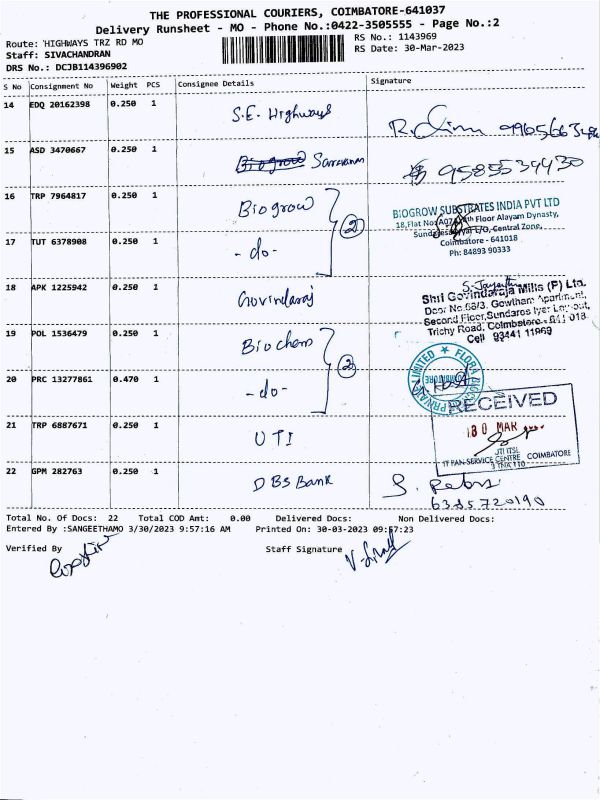 THE PROFESSIONAL COURIERS, COIMBATORE-641037
Delivery Runsheet - MO - Phone No.:0422-3505555 - Page No.:2
Route: HIGHWAYS TRZ RD MO
RS No.: 1143969
Staff: SIVACHANDRAN
RS Date: 30-Mar-2023
DRS No.: DCJB114396902
S No Consignment No Weight PCS Consignee Details Signature
14 EDQ 20162398 0.250 1 S.E. Highways
15 ASD 3470667 0.250 1 Biogrow Saravanan 9585534430
16 TRP 7964817 0.250 1 Biogrow
BIOGROW SUBSTRATES INDIA PVT LTD
18, Flat No: A07, Floor Alayam Dynasty,
L/O, Central Zone,
Coimbatore - 641018
Ph: 84893 90333
2
17 TUT 6378908 0.250 1 -do-
18 APK 1225942 0.250 1 Govindaraj
Shri Govindaraja Mills (P) Ltd.
Door No.66/3. Gowtham Apartment,
Second Floor, Sundaros Iyer Lay-out,
Trichy Road, Coimbatore - 641 018.
Cell 93441 11969
19 POL 1536479 0.250 1 Biochem
2
20 PRC 13277861 0.470 1 -do-
PRIVATE LIMITED ★ FLORA
COIMBATORE
21 TRP 6887671 0.250 1 UTI
RECEIVED
30 MAR
JTI ITSL
IT PAN-SERVICE CENTRE COIMBATORE
22 GPM 282763 0.250 1 DBS Bank
6385720190
Total No. Of Docs: 22 Total COD Amt: 0.00 Delivered Docs: Non Delivered Docs:
Entered By :SANGEETHAMO 3/30/2023 9:57:16 AM Printed On: 30-03-2023 09:57:23
Verified By Staff Signature